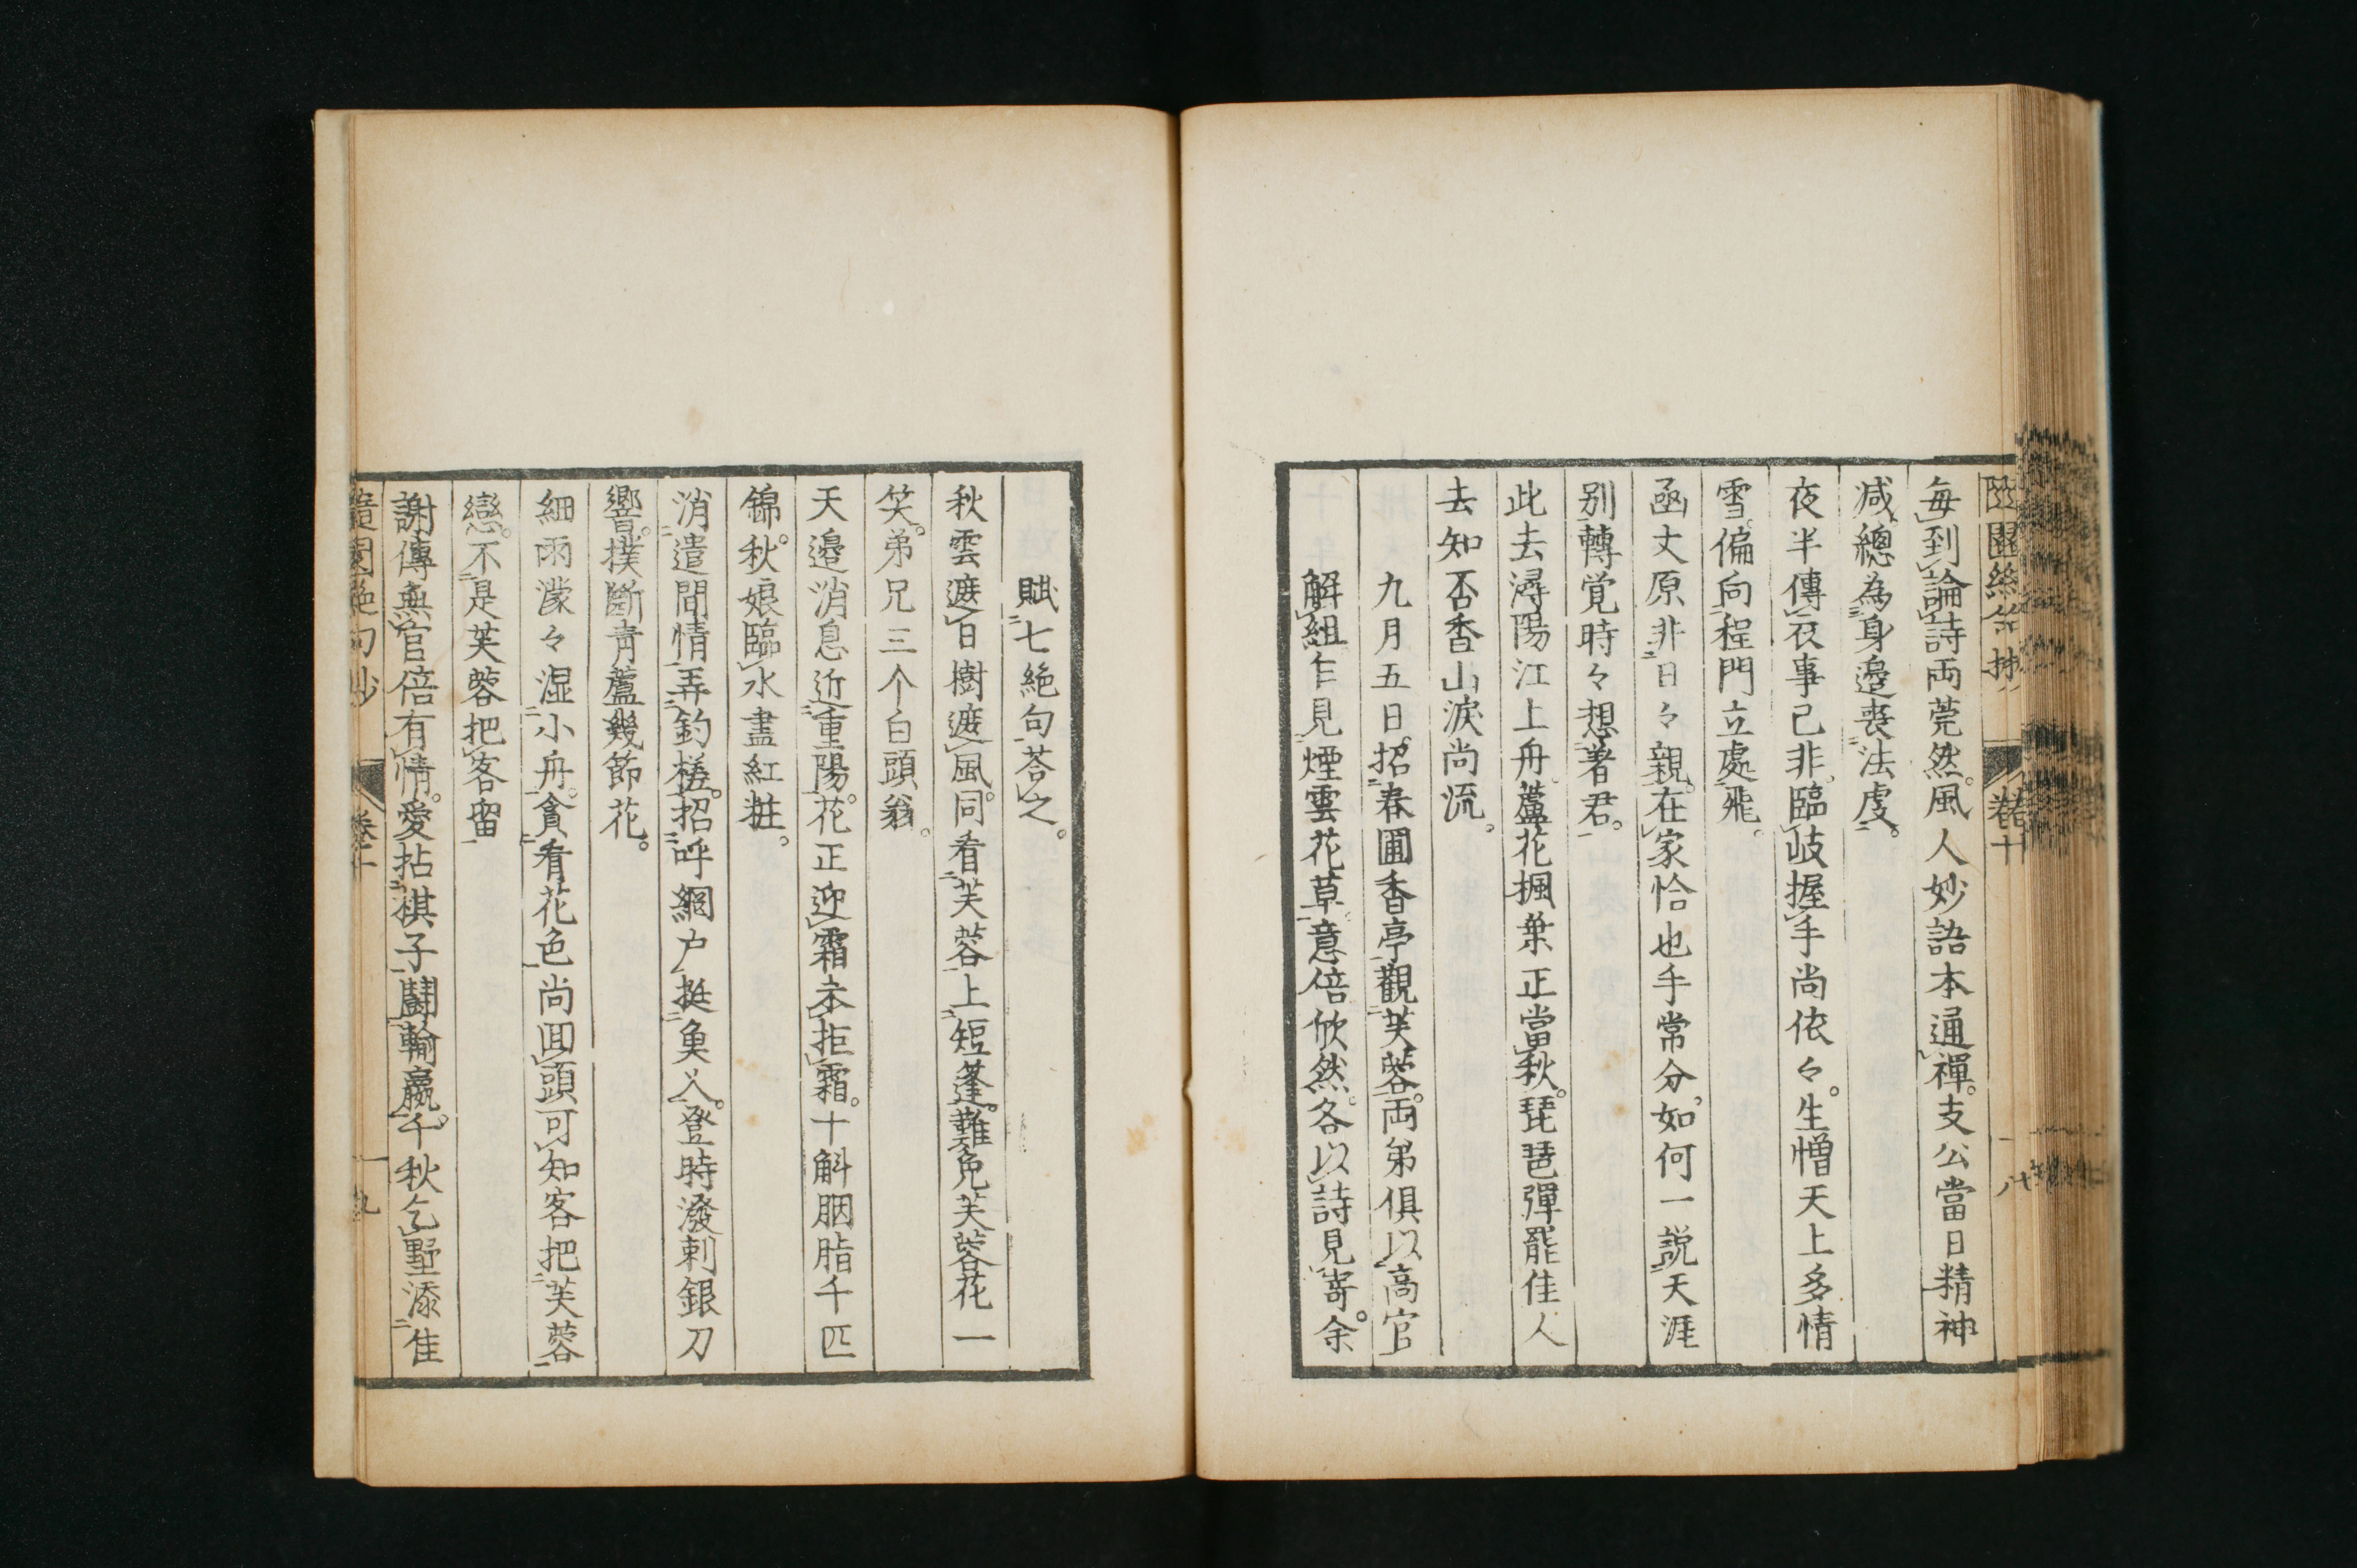 每到論詩両莞然。風人妙語本通禪。支公當日精神
减、總為身邉喪法度。
夜半傳衣事己非。臨岐握手尚依々。生憎天上多情
雪。偏向程門立處飛。
函丈原非日々親。在家恰也手常分、如何一説天涯
别轉覚時々想著君。
此去潯陽江上舟。蘆花楓葉正當秋。琵琶彈罷佳人
去知否香山淚尚流。
九月五日。招春圃香亭觀芙蓉。両弟俱以高官
解組乍見煙雲花草。意倍欣然。各以詩見寄。余
賦七絶句荅之。
秋雲遮日樹遮風。同看芙蓉上短蓬。難免芙蓉花一
笑。弟兄三个白頭翁。
天邉消息近重陽。花正迎霜未拒霜。十斛胭脂千匹
錦。秋娘臨水盡紅粧。
消遣閒情弄釣槎。招呼網户挺魚入。登時潑剌銀刀
響。撲斷青蘆幾節花。
細雨濛々湿小舟。貪看花色尚囬頭可知客把芙蓉
戀。不是芙蓉把客畱
謝傳無官倍有情。愛拈棋子鬪輸嬴。千秋乞墅添佳
卷十